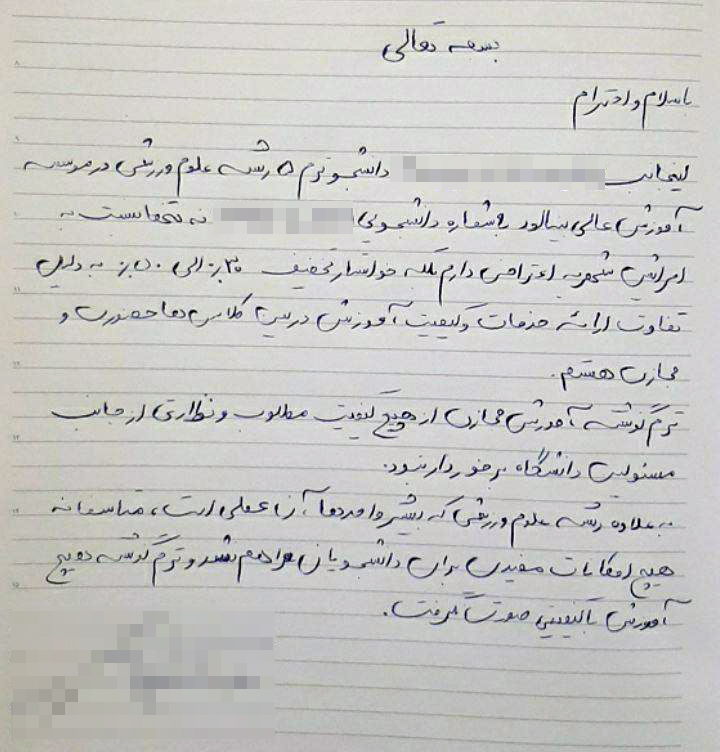 بسمه تعالی
باسلام و احترام
اینجانب دانشجو ترم ۵ رشته علوم ورزشی در موسسه
آموزش عالی با شماره دانشجویی نه تنها نسبت به
افزایش شهریه اعتراض دارم بلکه خواستار تخفیف ۳۰٪ الی ۵۰٪ به دلیل
تفاوت ارائه خدمات و کیفیت آموزش در بین کلاس ها حضوری و
مجازی هستم.
ترم گذشته آموزش مجازی از هیچ کیفیت مطلوب و نظارتی از جانب
مسئولین دانشگاه برخوردار نبود.
به علاوه رشته علوم ورزشی که بیشتر واحدها آن عملی است، متاسفانه
هیچ امکانات مفیدی برای دانشجویان فراهم نشد و ترم گذشته هیچ
آموزش باکیفیتی صورت نگرفت.